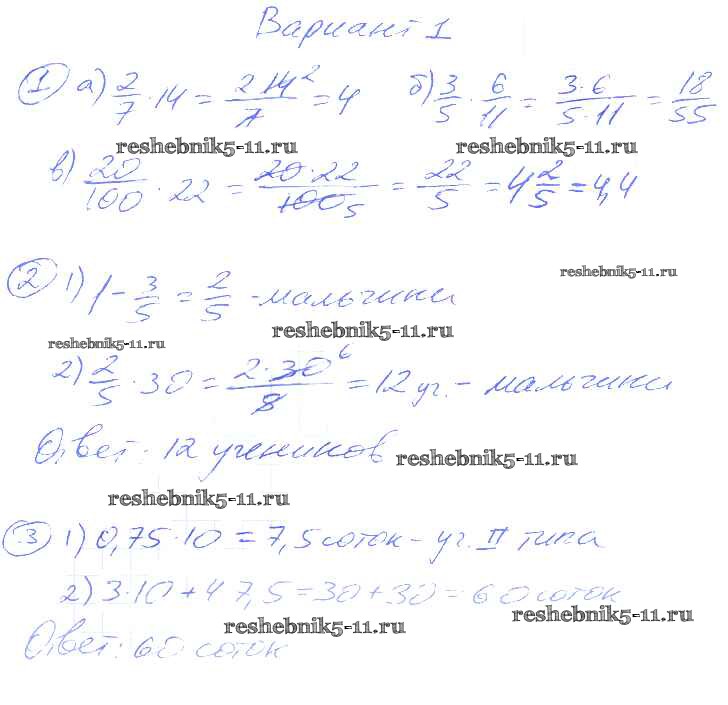 Вариант 1
1 а) 2/7 · 14 = 2 14 2/7 = 4 б) 3/5 · 6/11 = 3·6/5·11 = 18/55
reshebnik5-11.ru reshebnik5-11.ru
в) 20/100 · 22 = 20·22/100 5 = 22/5 = 4 2/5 = 4,4
reshebnik5-11.ru
2 1) 1 - 3/5 = 2/5 - мальчики
reshebnik5-11.ru
reshebnik5-11.ru
2) 2/5 · 30 = 2·30 6/5 = 12 уч. - мальчики
Ответ: 12 учеников
reshebnik5-11.ru
reshebnik5-11.ru
3 1) 0,75·10 = 7,5 соток - уч. II типа
2) 3·10 + 4 7,5 = 30 + 30 = 60 соток
reshebnik5-11.ru
reshebnik5-11.ru
Ответ: 60 соток